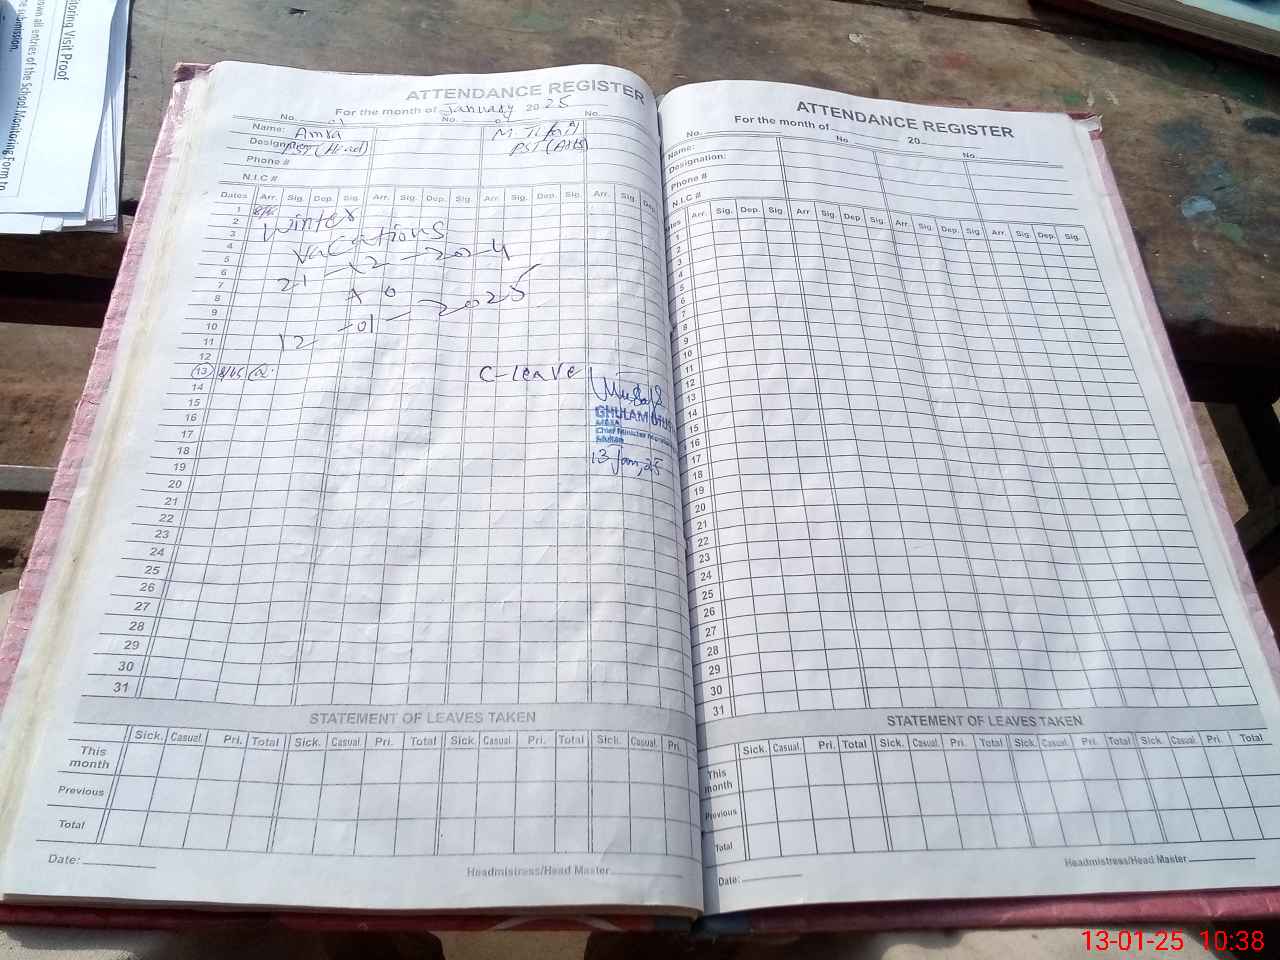 toring Visit Proof
own all entries of the School Monitoring Form to
submission.
ATTENDANCE REGISTER
For the month of January 2025
No. 01 No. No.
Name: Amra M. Tufail
Designation: PST (Head) PST (Arts)
Phone #
N.I.C #
Dates Arr. Sig. Dep. Sig. Arr. Sig. Dep. Sig. Arr. Sig. Dep. Sig. Arr. Sig. Dep.
1
2 Winter
3
4 Vacations
5
6 21-12-2024
7
8 To
9
10
11 12-01-2025
12
13 8/45 C-leave
14
15
16 GHULAM
17 Chief Minister
Multan
18 13 Jan, 25
19
20
21
22
23
24
25
26
27
28
29
30
31
STATEMENT OF LEAVES TAKEN
Sick. Casual. Pri. Total Sick. Casual. Pri. Total Sick. Casual. Pri. Total Sick. Casual. Pri.
This month
Previous
Total
Date:
Headmistress/Head Master
ATTENDANCE REGISTER
For the month of 20
No. No. No.
Name:
Designation:
Phone #
N.I.C #
ates Arr. Sig. Dep. Sig. Arr. Sig. Dep. Sig. Arr. Sig. Dep. Sig. Arr. Sig. Dep. Sig.
1
2
3
4
5
6
7
8
9
10
11
12
13
14
15
16
17
18
19
20
21
22
23
24
25
26
27
28
29
30
31
STATEMENT OF LEAVES TAKEN
Sick. Casual. Pri. Total Sick. Casual. Pri. Total Sick. Casual. Pri. Total Sick. Casual. Pri. Total
This month
Previous
Total
Headmistress/Head Master
Date:
13-01-25 10:38